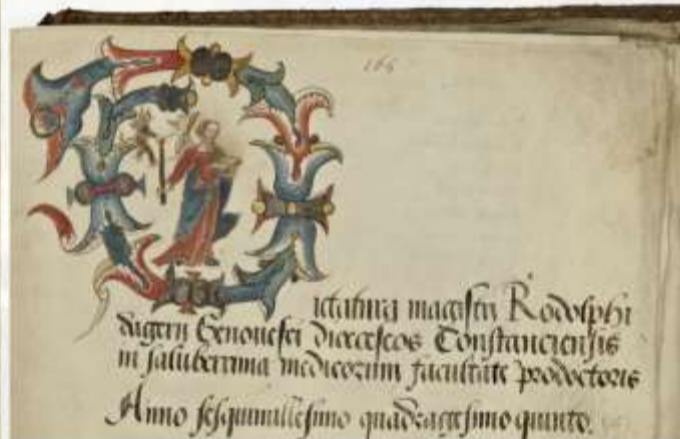 166
Dictatura magistri Rodolphi
diocesos Constanciensis
in saluberrima medicorum facultate prodoctoris
Anno sesquimillesimo quadragesimo quinto.